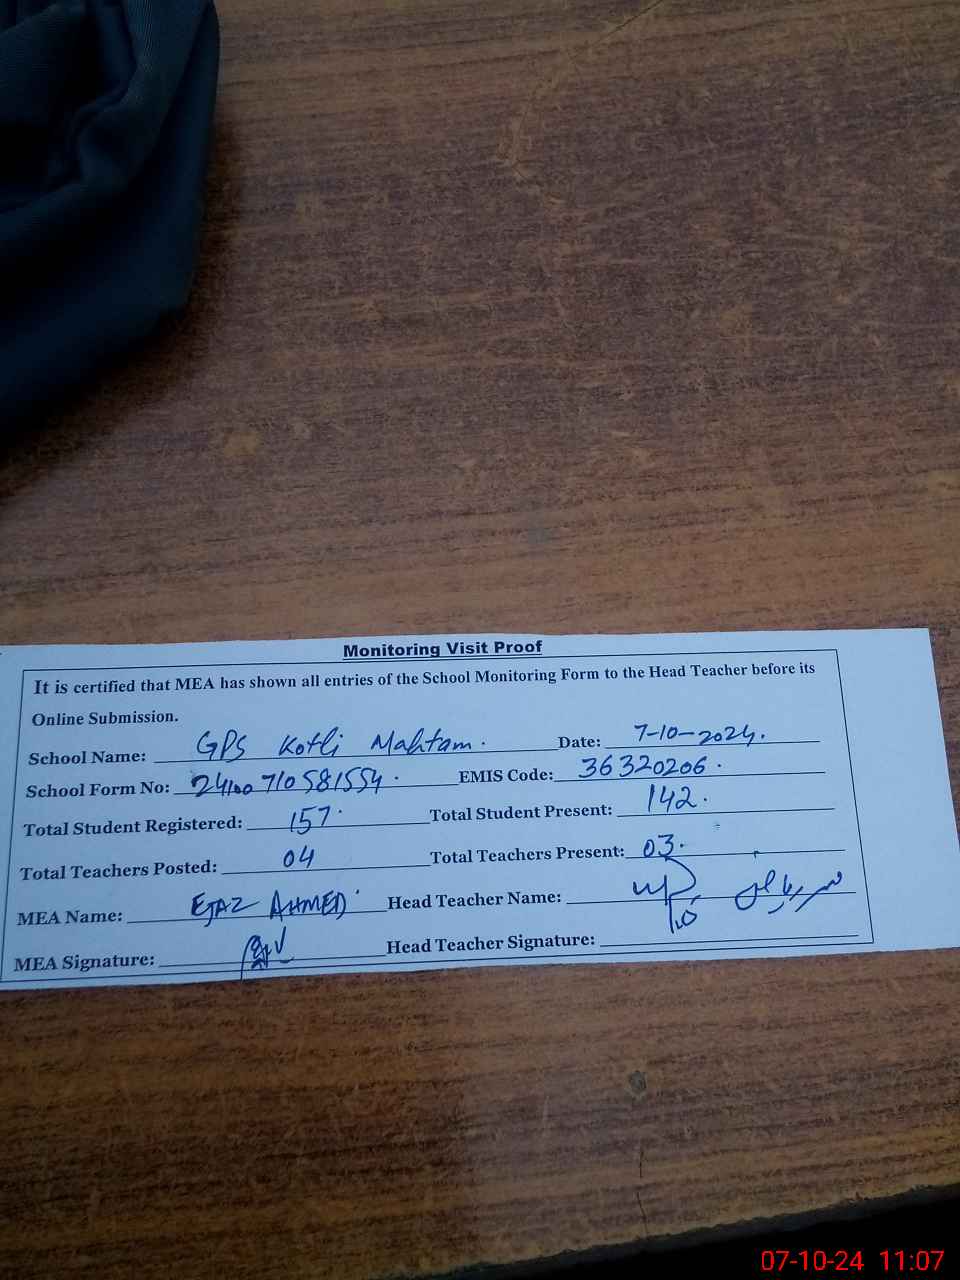 Monitoring Visit Proof
It is certified that MEA has shown all entries of the School Monitoring Form to the Head Teacher before its
Online Submission.
School Name: GPS Kotli Mahtam. Date: 7-10-2024.
School Form No: 24100710581554. EMIS Code: 36320206.
Total Student Registered: 157. Total Student Present: 142.
Total Teachers Posted: 04 Total Teachers Present: 03.
MEA Name: EJAZ AHMED. Head Teacher Name:
MEA Signature: Head Teacher Signature:
07-10-24 11:07